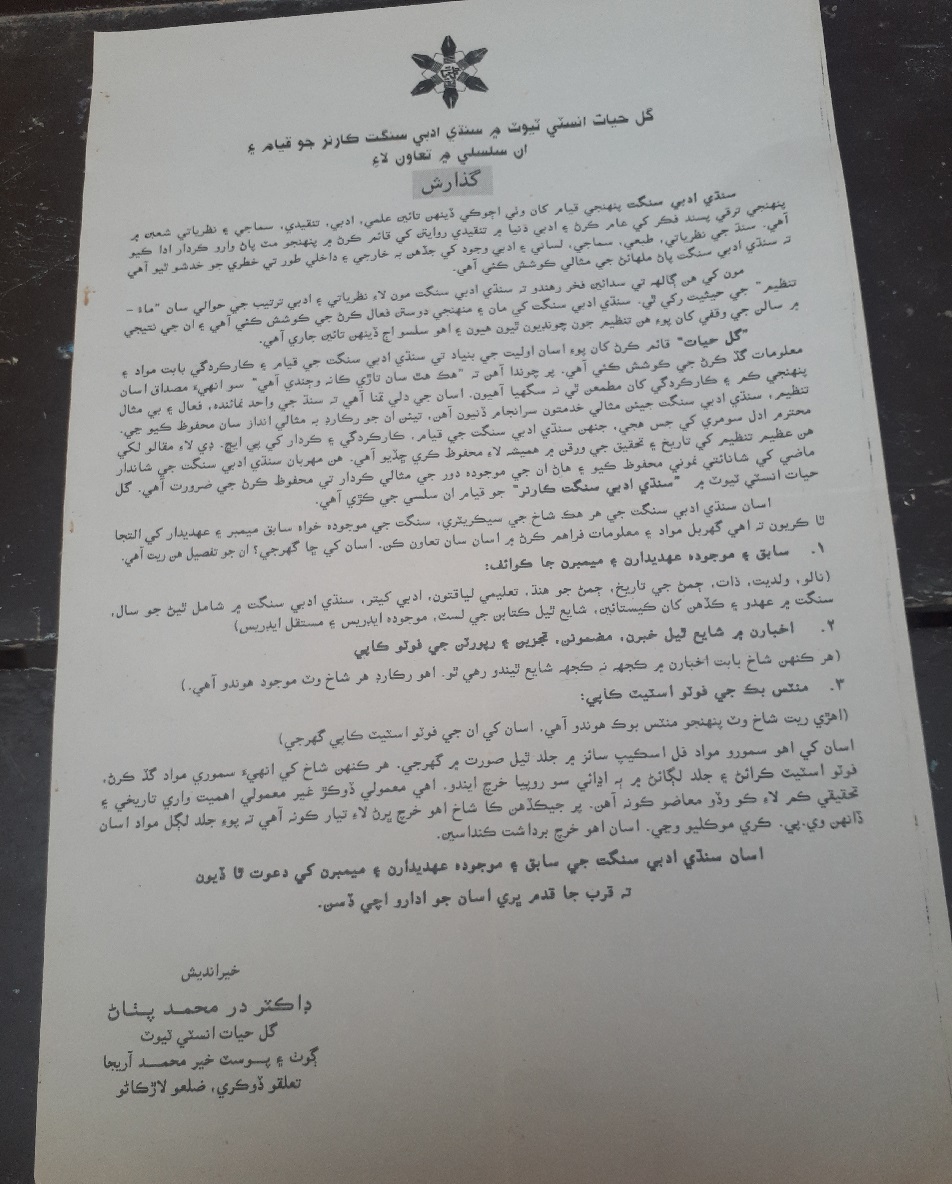 گل حيات انسٽي ٽيوٽ ۾ سنڌي ادبي سنگت ڪارنر جو قيام ۽
ان سلسلي ۾ تعاون لاءِ
گذارش
سنڌي ادبي سنگت پنهنجي قيام کان وٺي اڄوڪي ڏينهن تائين علمي، ادبي، تنقيدي، سماجي ۽ نظرياتي شعبن ۾
پنهنجي ترقي پسند فڪر کي عام ڪرڻ ۽ ادبي دنيا ۾ تنقيدي روايتن کي قائم ڪرڻ ۾ پنهنجو مٽ پاڻ وارو ڪردار ادا ڪيو
آهي. سنڌ جي نظرياتي، طبعي، سماجي، لساني ۽ ادبي وجود کي جڏهن به خارجي ۽ داخلي طور تي خطري جو خدشو ٿيو آهي
ته سنڌي ادبي سنگت پاڻ ملهائڻ جي مثالي ڪوشش ڪئي آهي.
مون کي هن ڳالهه تي سدائين فخر رهندو ته سنڌي ادبي سنگت مون لاءِ نظرياتي ۽ ادبي ترتيب جي حوالي سان "ماءُ –
تنظيم" جي حيثيت رکي ٿي. سنڌي ادبي سنگت کي مان ۽ منهنجي دوستن فعال ڪرڻ جي ڪوشش ڪئي آهي ۽ ان جي نتيجي
۾ سالن جي وقفي کان پوءِ هن تنظيم جون چونڊون ٿيون هيون ۽ اهو سلسو اڄ ڏينهن تائين جاري آهي.
"گل حيات" قائم ڪرڻ کان پوءِ اسان اوليت جي بنياد تي سنڌي ادبي سنگت جي قيام ۽ ڪارڪردگي بابت مواد ۽
معلومات گڏ ڪرڻ جي ڪوشش ڪئي آهي. پر چوندا آهن ته "هڪ هٿ سان تاڙي ڪانه وڄندي آهي" سو انهيءَ مصداق اسان
پنهنجي ڪم ۽ ڪارڪردگي کان مطمعن ٿي نه سگهيا آهيون. اسان جي دلي تمنا آهي ته سنڌ جي واحد نمائنده، فعال ۽ بي مثال
تنظيم، سنڌي ادبي سنگت جيئن مثالي خدمتون سرانجام ڏنيون آهن، تيئن ان جو رڪارڊ به مثالي انداز سان محفوظ ڪيو وڃي.
محترم ادل سومري کي جس هجي، جنهن سنڌي ادبي سنگت جي قيام، ڪارڪردگي ۽ ڪردار کي پي ايڇ. ڊي لاءِ مقالو لکي
هن عظيم تنظيم کي تاريخ ۽ تحقيق جي ورقن ۾ هميشه لاءِ محفوظ ڪري ڇڏيو آهي. هن مهربان سنڌي ادبي سنگت جي شاندار
ماضي کي شانائتي نموني محفوظ ڪيو ۽ هاڻ ان جي موجوده دور جي مثالي ڪردار تي محفوظ ڪرڻ جي ضرورت آهي. گل
حيات انسٽي ٽيوٽ ۾ "سنڌي ادبي سنگت ڪارنر" جو قيام ان سلسي جي ڪڙي آهي.
اسان سنڌي ادبي سنگت جي هر هڪ شاخ جي سيڪريٽري، سنگت جي موجوده خواه سابق ميمبر ۽ عهديدار کي التجا
ٿا ڪريون ته اهي گهربل مواد ۽ معلومات فراهم ڪرڻ ۾ اسان سان تعاون ڪن. اسان کي ڇا گهرجي؟ ان جو تفصيل هن ريت آهي.
۱. سابق ۽ موجوده عهديدارن ۽ ميمبرن جا ڪوائف:
(نالو، ولديت، ذات، ڄمڻ جي تاريخ، ڄمڻ جو هنڌ، تعليمي لياقتون، ادبي کيتر، سنڌي ادبي سنگت ۾ شامل ٿيڻ جو سال،
سنگت ۾ عهدو ۽ ڪڏهن کان ڪيستائين، شايع ٿيل ڪتابن جي لسٽ، موجوده ايڊريس ۽ مستقل ايڊريس)
۲. اخبارن ۾ شايع ٿيل خبرن، مضمونن، تجزين ۽ رپورٽن جي فوٽو ڪاپي
(هر ڪنهن شاخ بابت اخبارن ۾ ڪجهه نه ڪجهه شايع ٿيندو رهي ٿو. اهو رڪارڊ هر شاخ وٽ موجود هوندو آهي.)
۳. منٽس بڪ جي فوٽو اسٽيٽ ڪاپي:
(اهڙي ريت شاخ وٽ پنهنجو منٽس بوڪ هوندو آهي. اسان کي ان جي فوٽو اسٽيٽ ڪاپي گهرجي)
اسان کي اهو سمورو مواد فل اسڪيپ سائز ۾ جلد ٿيل صورت ۾ گهرجي. هر ڪنهن شاخ کي انهيءَ سموري مواد گڏ ڪرڻ،
فوٽو اسٽيٽ ڪرائڻ ۽ جلد لڳائڻ ۾ ٻه اڍائي سو روپيا خرچ ايندو. اهي معمولي ڏوڪڙ غير معمولي اهميت واري تاريخي ۽
تحقيقي ڪم لاءِ ڪو وڏو معاضو ڪونه آهن. پر جيڪڏهن ڪا شاخ اهو خرچ ڀرڻ لاءِ تيار ڪونه آهي ته پوءِ جلد لڳل مواد اسان
ڏانهن وي.پي. ڪري موڪليو وڃي. اسان اهو خرچ برداشت ڪنداسين.
اسان سنڌي ادبي سنگت جي سابق ۽ موجوده عهديدارن ۽ ميمبرن کي دعوت ٿا ڏيون
ته قرب جا قدم ڀري اسان جو ادارو اچي ڏسن.
خيرانديش
ڊاڪٽر در محمد پٺاڻ
گل حيات انسٽي ٽيوٽ
ڳوٺ ۽ پوسٽ خير محمد آريجا
تعلقو ڏوڪري، ضلعو لاڙڪاڻو